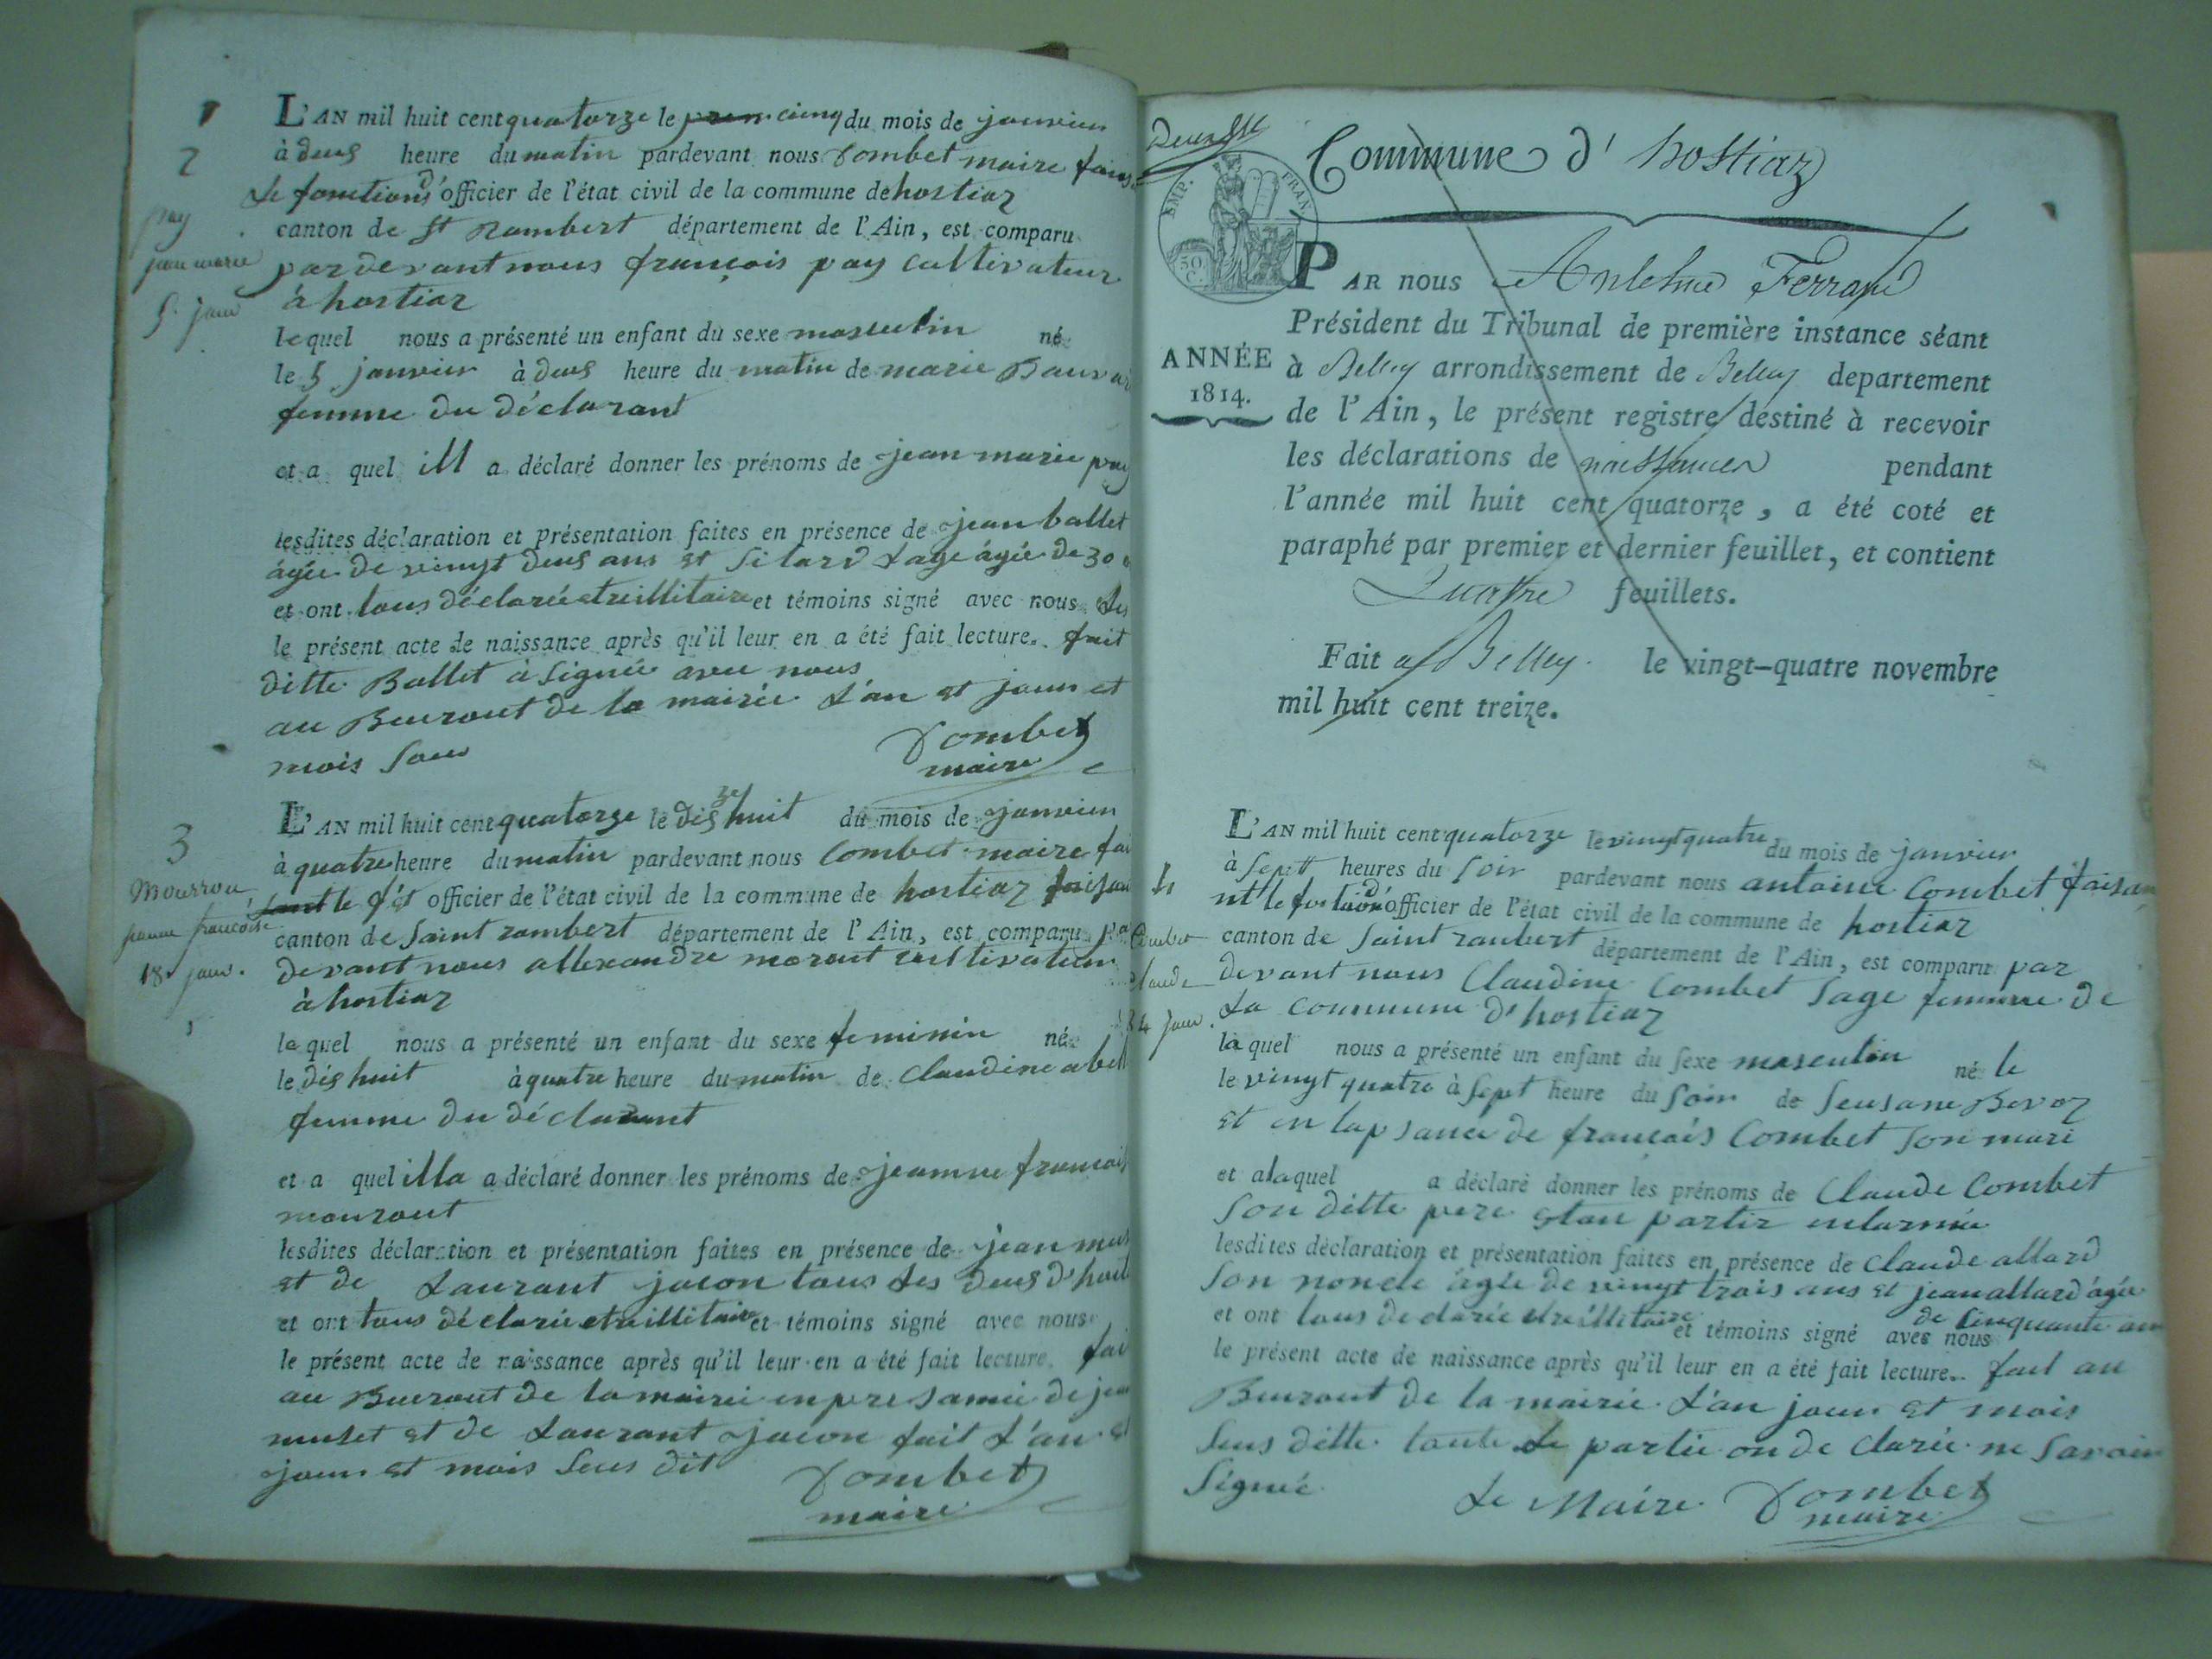 1
2
pay
jean marie
5. janv
L'AN mil huit cent quatorze le cinq du mois de janvier
à deus heure du matin pardevant nous Combet maire fais
Le fonctions d'officier de l'état civil de la commune de hostiaz
canton de St Rambert département de l'Ain, est comparu
pardevant nous françois pay cultivateur
à hostiaz
lequel nous a présenté un enfant du sexe masculin né
le 5 janvier à deus heure du matin de marie
femme du déclarant
et a quel ill a déclaré donner les prénoms de jean marie pay
lesdites déclaration et présentation faites en présence de jean ballet
âgée de vingt deus ans et Silard Lage âgée de 30
et ont tous déclarée etreillitaire et témoins signé avec nous Les
le présent acte de naissance après qu'il leur en a été fait lecture. fait
ditte Ballet à Signée avec nous
au Beuraut de la mairie L'an et jour et
mois Sous
Combet
maire
3
Mourrou
jeanne francoise
18. janv.
L'AN mil huit cent quatorze le dis huit du mois de janvier
à quatre heure du matin pardevant nous Combet maire fai
officier de l'état civil de la commune de hostiaz faisan
canton de Saint rambert département de l'Ain, est comparu par
devant nous allexandre moraut cultivateur
à hostiaz
lequel nous a présenté un enfant du sexe feminin né
le dis huit à quatre heure du matin de Claudine abell
femme du déclarant
et a quel illa a déclaré donner les prénoms de jeanne francois
mouraut
lesdites déclaration et présentation faites en présence de jean
et de Laurant jacon tous Les deus d'host
et ont tous déclarée etreillitaire et témoins signé avec nous
le présent acte de naissance après qu'il leur en a été fait lecture. fai
au Beuraut de la mairie en presance de jean
mulet et de Laurant jacon fait L'an et
jour et mois Sus dit
Combet
maire
Commune d'hostiaz
EMP. FRAN.
50 C.
ANNÉE
1814.
PAR nous Anthelme Ferrand
Président du Tribunal de première instance séant
à Belley arrondissement de Belley departement
de l'Ain, le présent registre destiné à recevoir
les déclarations de naissances pendant
l'année mil huit cent quatorze, a été coté et
paraphé par premier et dernier feuillet, et contient
Quatre feuillets.
Fait a Belley. le vingt-quatre novembre
mil huit cent treize.
4
Combet
Claude
24 janv.
L'AN mil huit cent quatorze le vingt quatre du mois de janvier
à Sept heures du Soir pardevant nous antoine Combet faisan
officier de l'état civil de la commune de hostiaz
canton de Saint rambert département de l'Ain, est comparu par
devant nous Claudine Combet Sage femme de
La commune d'hostiaz
laquel nous a présenté un enfant du sexe masculin né le
le vingt quatre à Sept heure du Soir de Seusane Bevoz
et en lapsance de francois Combet Son mari
et alaquel a déclaré donner les prénoms de Claude Combet
Son ditte pere etan partir enlarmée
lesdites déclaration et présentation faites en présence de Claude allard
Son noncle âgée de vingt trois ans et jean allard âgée
de Cinquante an
et ont tous declarée etreillitaire et témoins signé avec nous
le présent acte de naissance après qu'il leur en a été fait lecture. fait au
Beuraut de la mairie L'an jour et mois
Seus ditte toute Le partie on de clarée ne Savoir
Signée
Le Maire Combet
maire